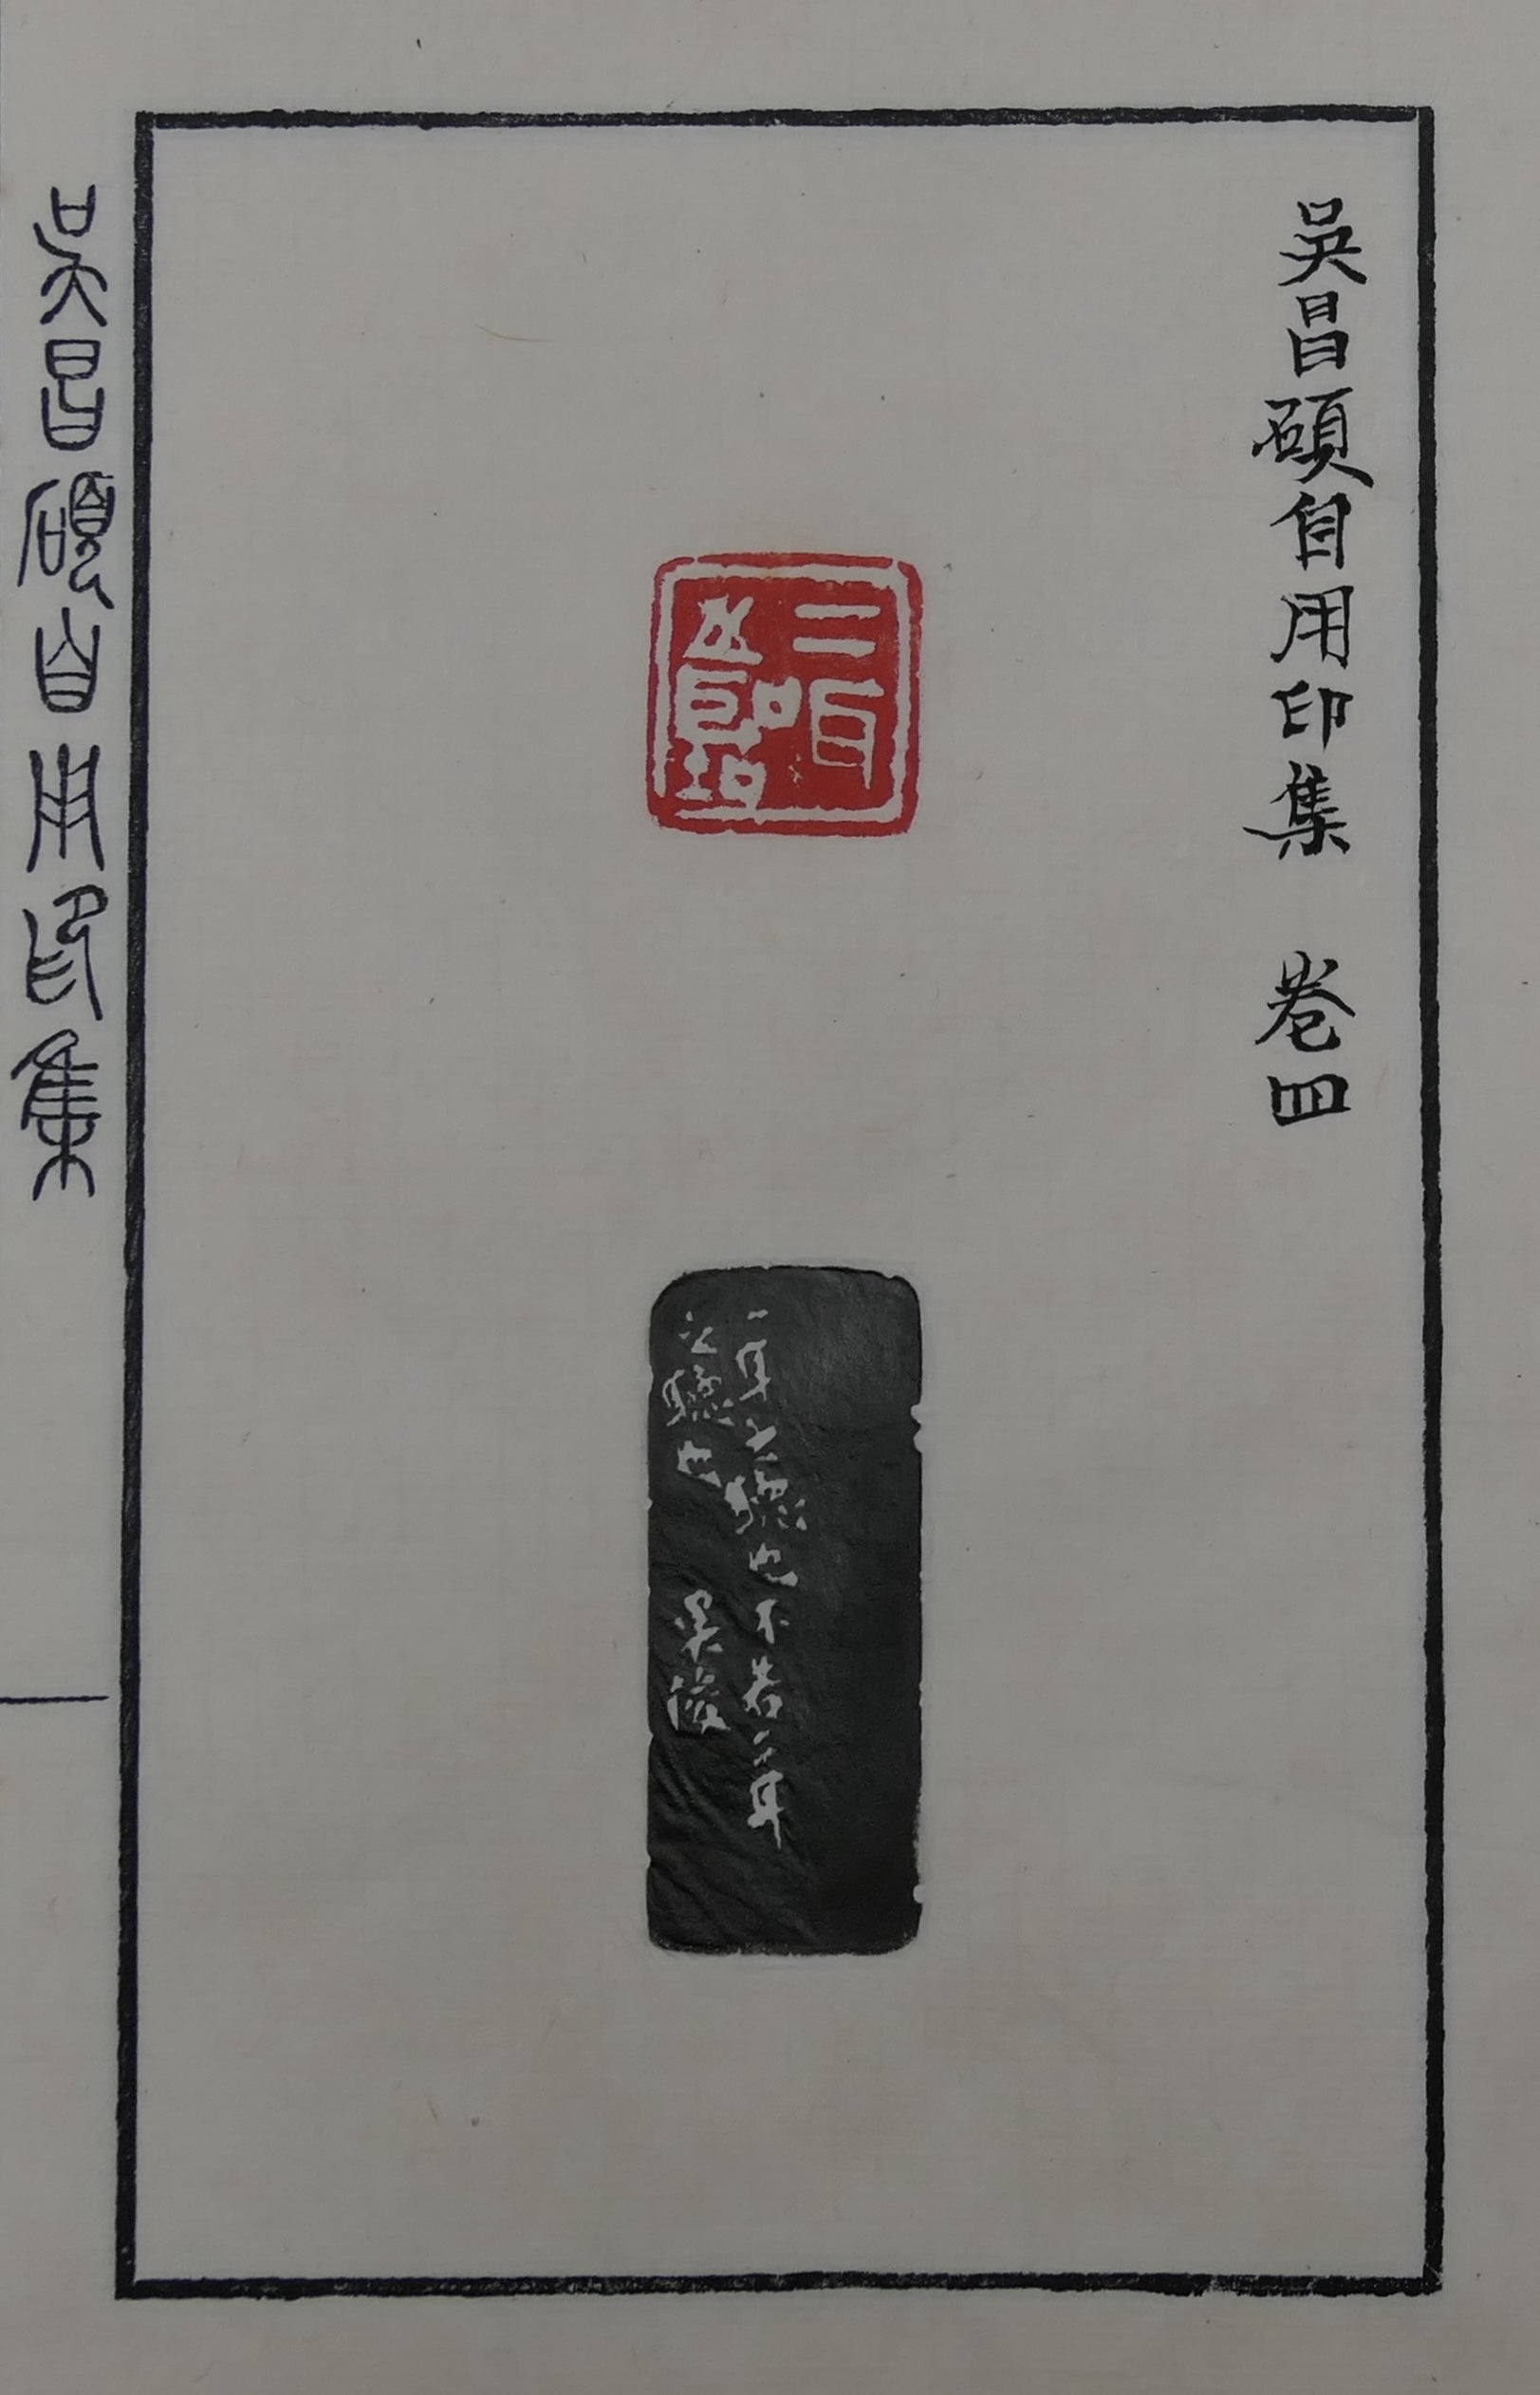 吳昌碩自用印集　卷四
二耳
之聽
一耳之聽也不若二耳
之聽也　吳俊
吳昌碩自用印集